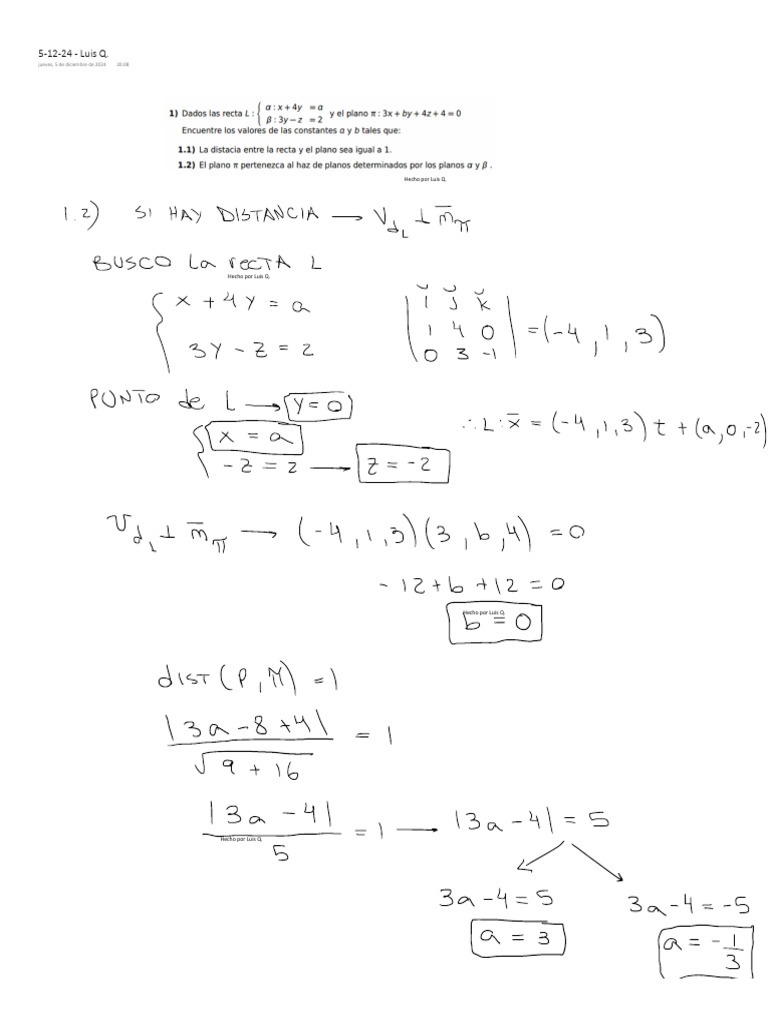 5-12-24 - Luis Q.
jueves, 5 de diciembre de 2024 20:08
1) Dados las recta L : { α : x + 4y = a
β : 3y − z = 2 y el plano π : 3x + by + 4z + 4 = 0
Encuentre los valores de las constantes a y b tales que:
1.1) La distacia entre la recta y el plano sea igual a 1.
1.2) El plano π pertenezca al haz de planos determinados por los planos α y β .
Hecho por Luis Q.
1.2) SI HAY DISTANCIA → V_dL ⊥ n̄_π
BUSCO La recTA L
Hecho por Luis Q.
{ x + 4y = a
3y - z = 2
| i j k |
| 1 4 0 | = (-4, 1, 3)
| 0 3 -1 |
PUNTO de L → y = 0
{ x = a
-z = 2 → z = -2
∴ L : x̄ = (-4, 1, 3) t + (a, 0, -2)
V_dL ⊥ n̄_π → (-4, 1, 3)(3, b, 4) = 0
-12 + b + 12 = 0
Hecho por Luis Q.
b = 0
dIST (P, π) = 1
|3a - 8 + 4| / √(9 + 16) = 1
|3a - 4| / 5 = 1 → |3a - 4| = 5
Hecho por Luis Q.
3a - 4 = 5 3a - 4 = -5
a = 3 a = -1/3